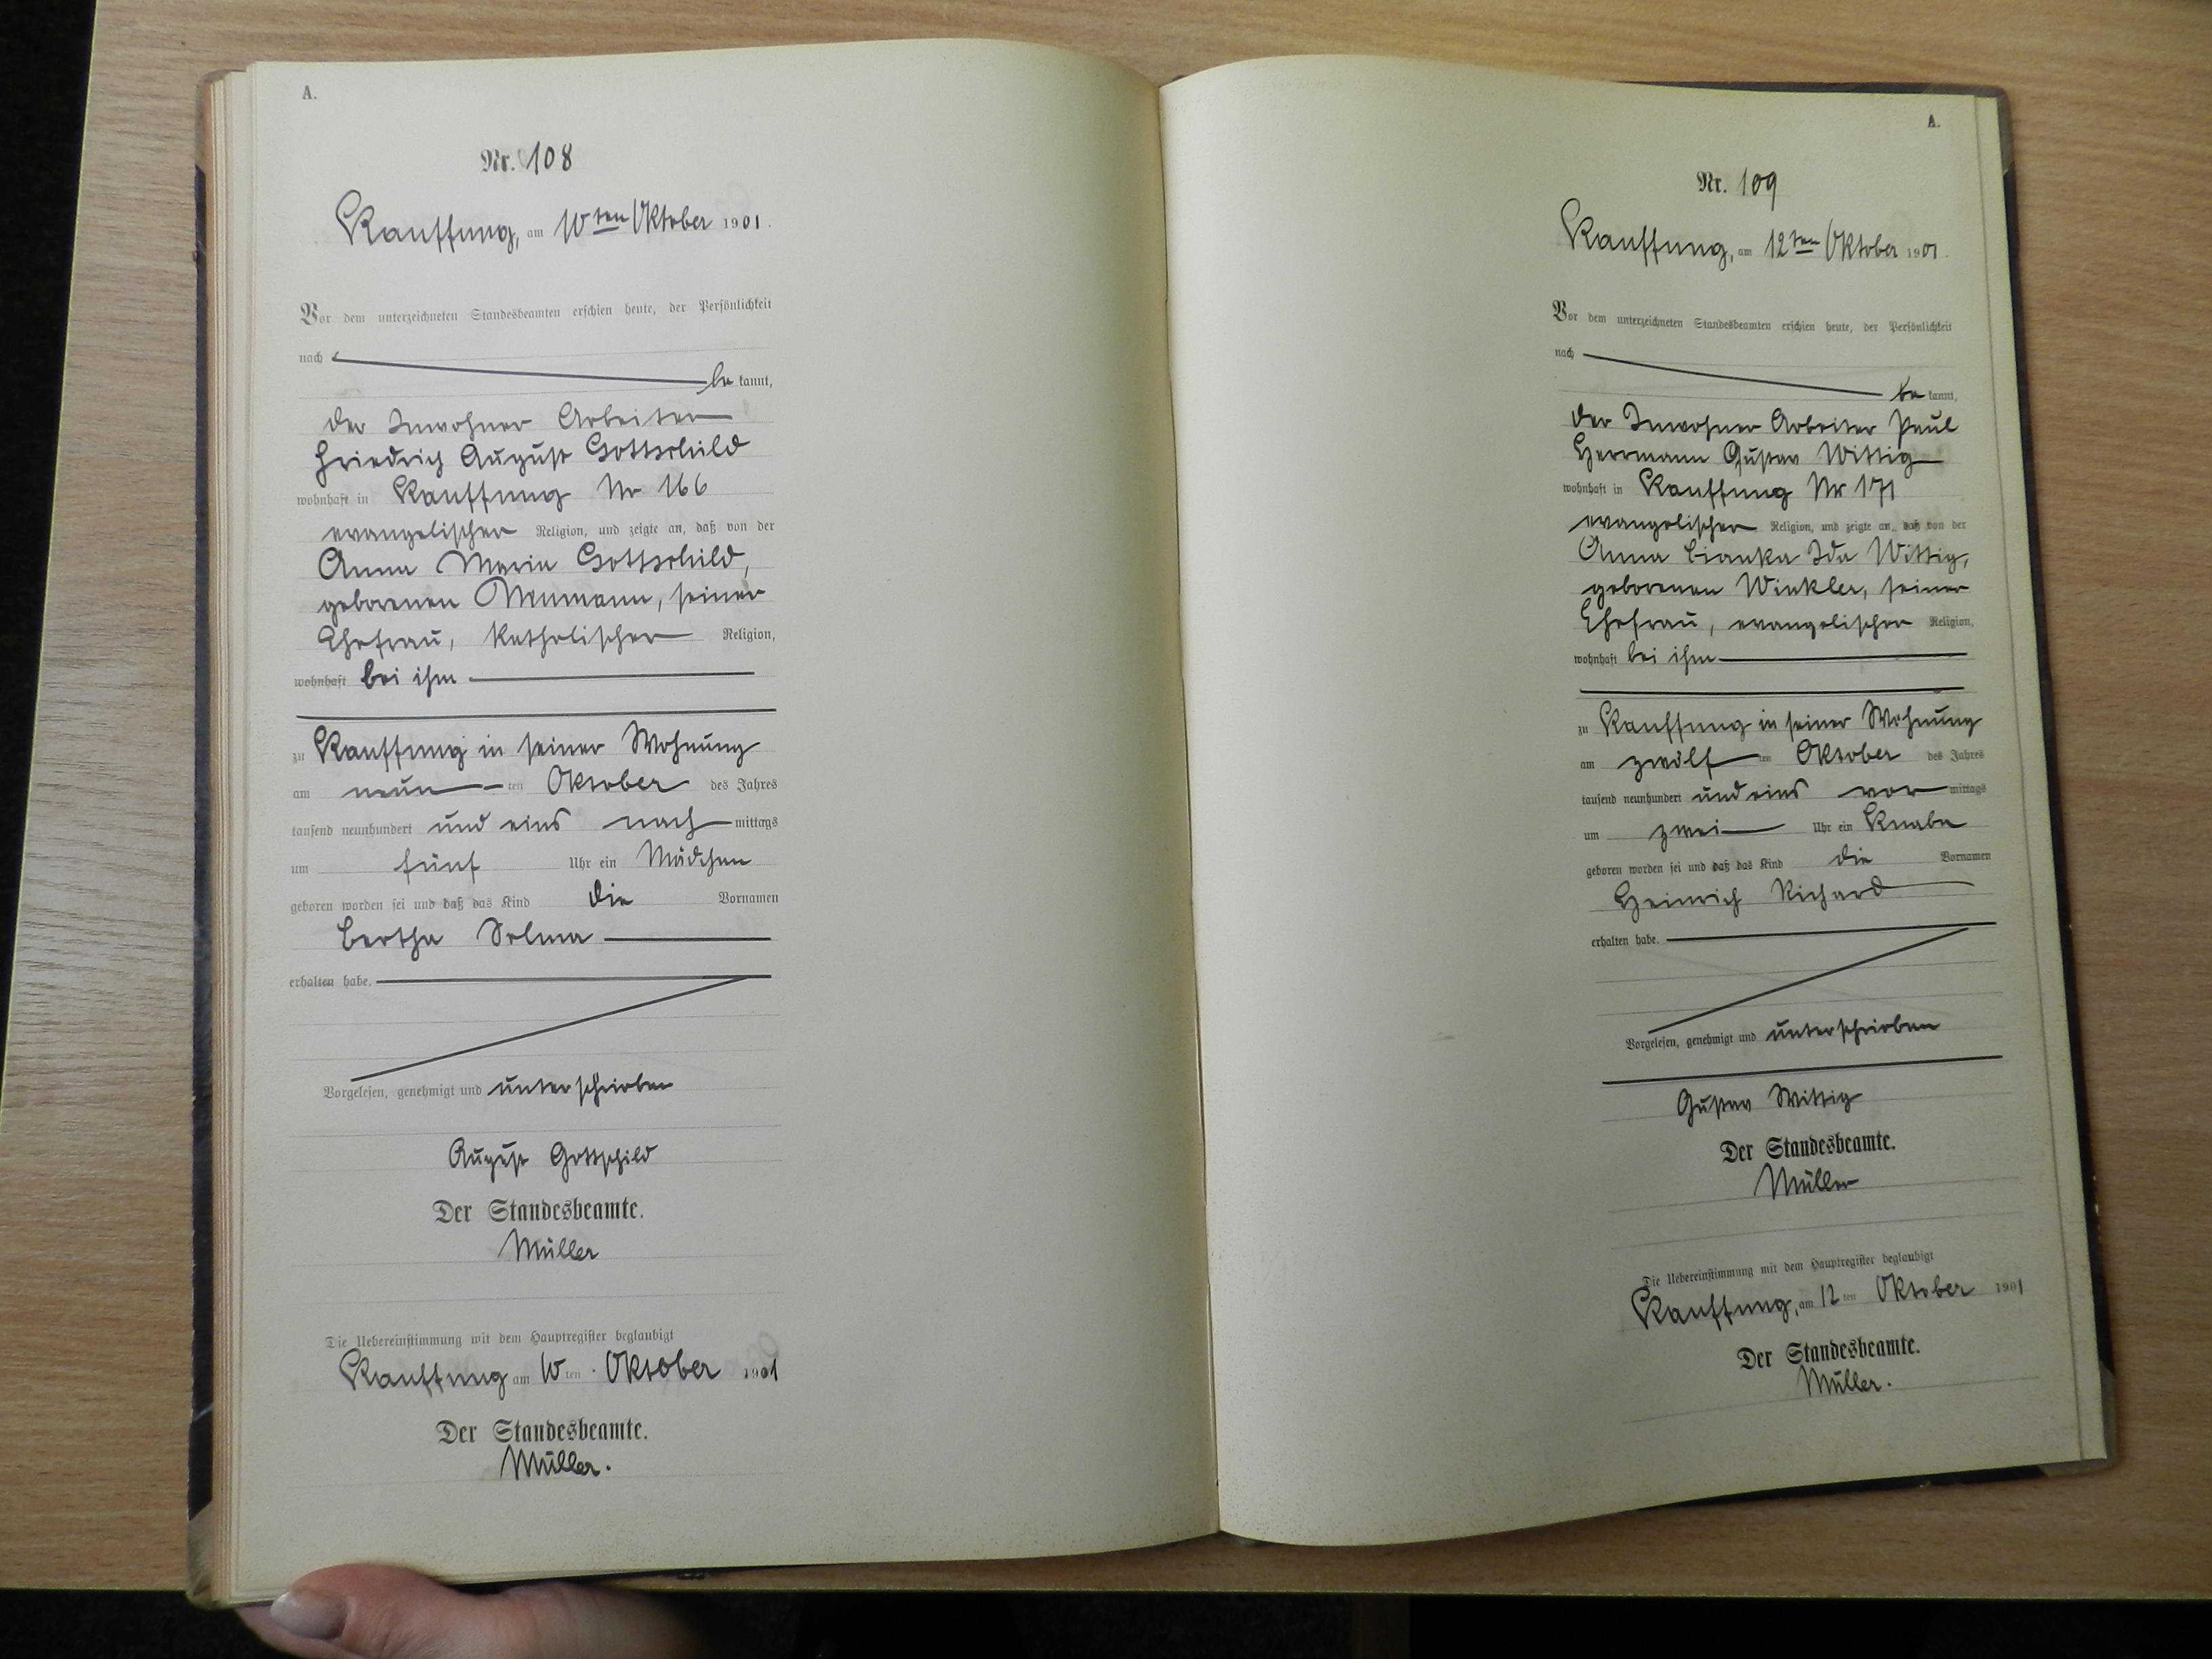 A.
Nr. 108
Kauffung, am 10ten Oktober 1901.
Vor dem unterzeichneten Standesbeamten erschien heute, der Persönlichkeit
nach
be kannt,
der Inwohner Arbeiter
Friedrich August Gottschild
wohnhaft in Kauffung Nr 166
evangelischer Religion, und zeigte an, daß von der
Anna Maria Gottschild,
geborenen Neumann, seiner
Ehefrau, katholischer Religion,
wohnhaft bei ihm
zu Kauffung in seiner Wohnung
am neun ten Oktober des Jahres
tausend neunhundert und eins nach mittags
um fünf Uhr ein Mädchen
geboren worden sei und daß das Kind die Vornamen
Bertha Selma
erhalten habe.
Vorgelesen, genehmigt und unterschrieben
August Gottschild
Der Standesbeamte.
Müller
Die Uebereinstimmung mit dem Hauptregister beglaubigt
Kauffung am 10ten Oktober 1901
Der Standesbeamte.
Müller.
A.
Nr. 109
Kauffung, am 12ten Oktober 1901.
Vor dem unterzeichneten Standesbeamten erschien heute, der Persönlichkeit
nach
be kannt,
der Inwohner Arbeiter Paul
Herrmann Gustav Wittig
wohnhaft in Kauffung Nr 171
evangelischer Religion, und zeigte an, daß von der
Anna Bianka Ida Wittig,
geborenen Winkler, seiner
Ehefrau, evangelischer Religion,
wohnhaft bei ihm
zu Kauffung in seiner Wohnung
am zwölf ten Oktober des Jahres
tausend neunhundert und eins vor mittags
um zwei Uhr ein Knabe
geboren worden sei und daß das Kind die Vornamen
Heinrich Richard
erhalten habe.
Vorgelesen, genehmigt und unterschrieben
Gustav Wittig
Der Standesbeamte.
Müller
Die Uebereinstimmung mit dem Hauptregister beglaubigt
Kauffung, am 12ten Oktober 1901
Der Standesbeamte.
Müller.